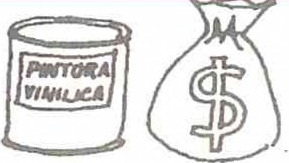 PINTURA
VINILICA
$